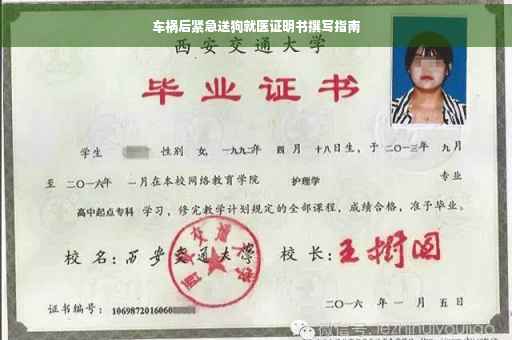 车祸后紧急送狗就医证明书撰写指南
西安交通大学
毕业证书
学生 性别 女,一九九二年 四月 十八日生,于二〇一三年 九月
至 二〇一六年 一月在本校网络教育学院 护理学 专业
高中起点专科 学习,修完教学计划规定的全部课程,成绩合格,准予毕业。
校 名:西安交通大学 校 长:王树国
西安交通大学
证书编号:1069872016060
二〇一六 年 一 月 五 日
微信号:jiezhihuiyoujiao